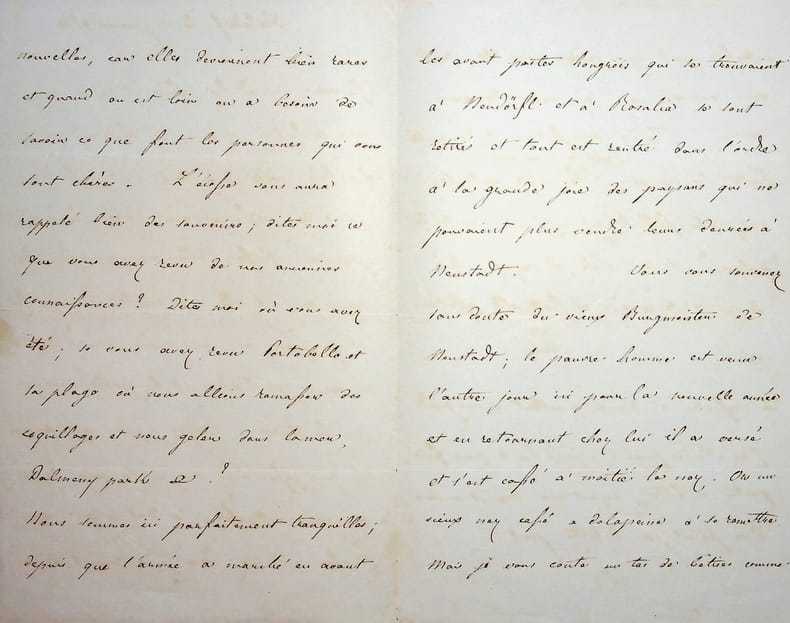 nouvelles, car elles deviennent bien rares
et quand on est loin on a besoin de
savoir ce que font les personnes qui vous
sont chères. L'écosse vous aura
rappelé bien des souvenirs; dites moi ce
que vous avez revu de nos anciennes
connaissances? Dites moi où vous avez
été; si vous avez revu Portobello et
sa plage où nous allions ramasser des
coquillages et nous geler dans la mer,
Dalmeny park &?
Nous sommes ici parfaitement tranquilles;
depuis que l'armée a marché en avant
les avant postes hongrois qui se trouvaient
à Neudörfl et à Rosalia se sont
retirés et tout est rentré dans l'ordre
à la grande joie des paysans qui ne
pouvaient plus vendre leurs denrées à
Neustadt. Vous vous souvenez
sans doute du vieux Burgmeister de
Neustadt; le pauvre homme est venu
l'autre jour ici pour la nouvelle année
et en retournant chez lui il a versé
et s'est cassé à moitié le nez. Or un
vieux nez cassé a de la peine à se remettre.
Mais je vous conte un tas de bêtises comme